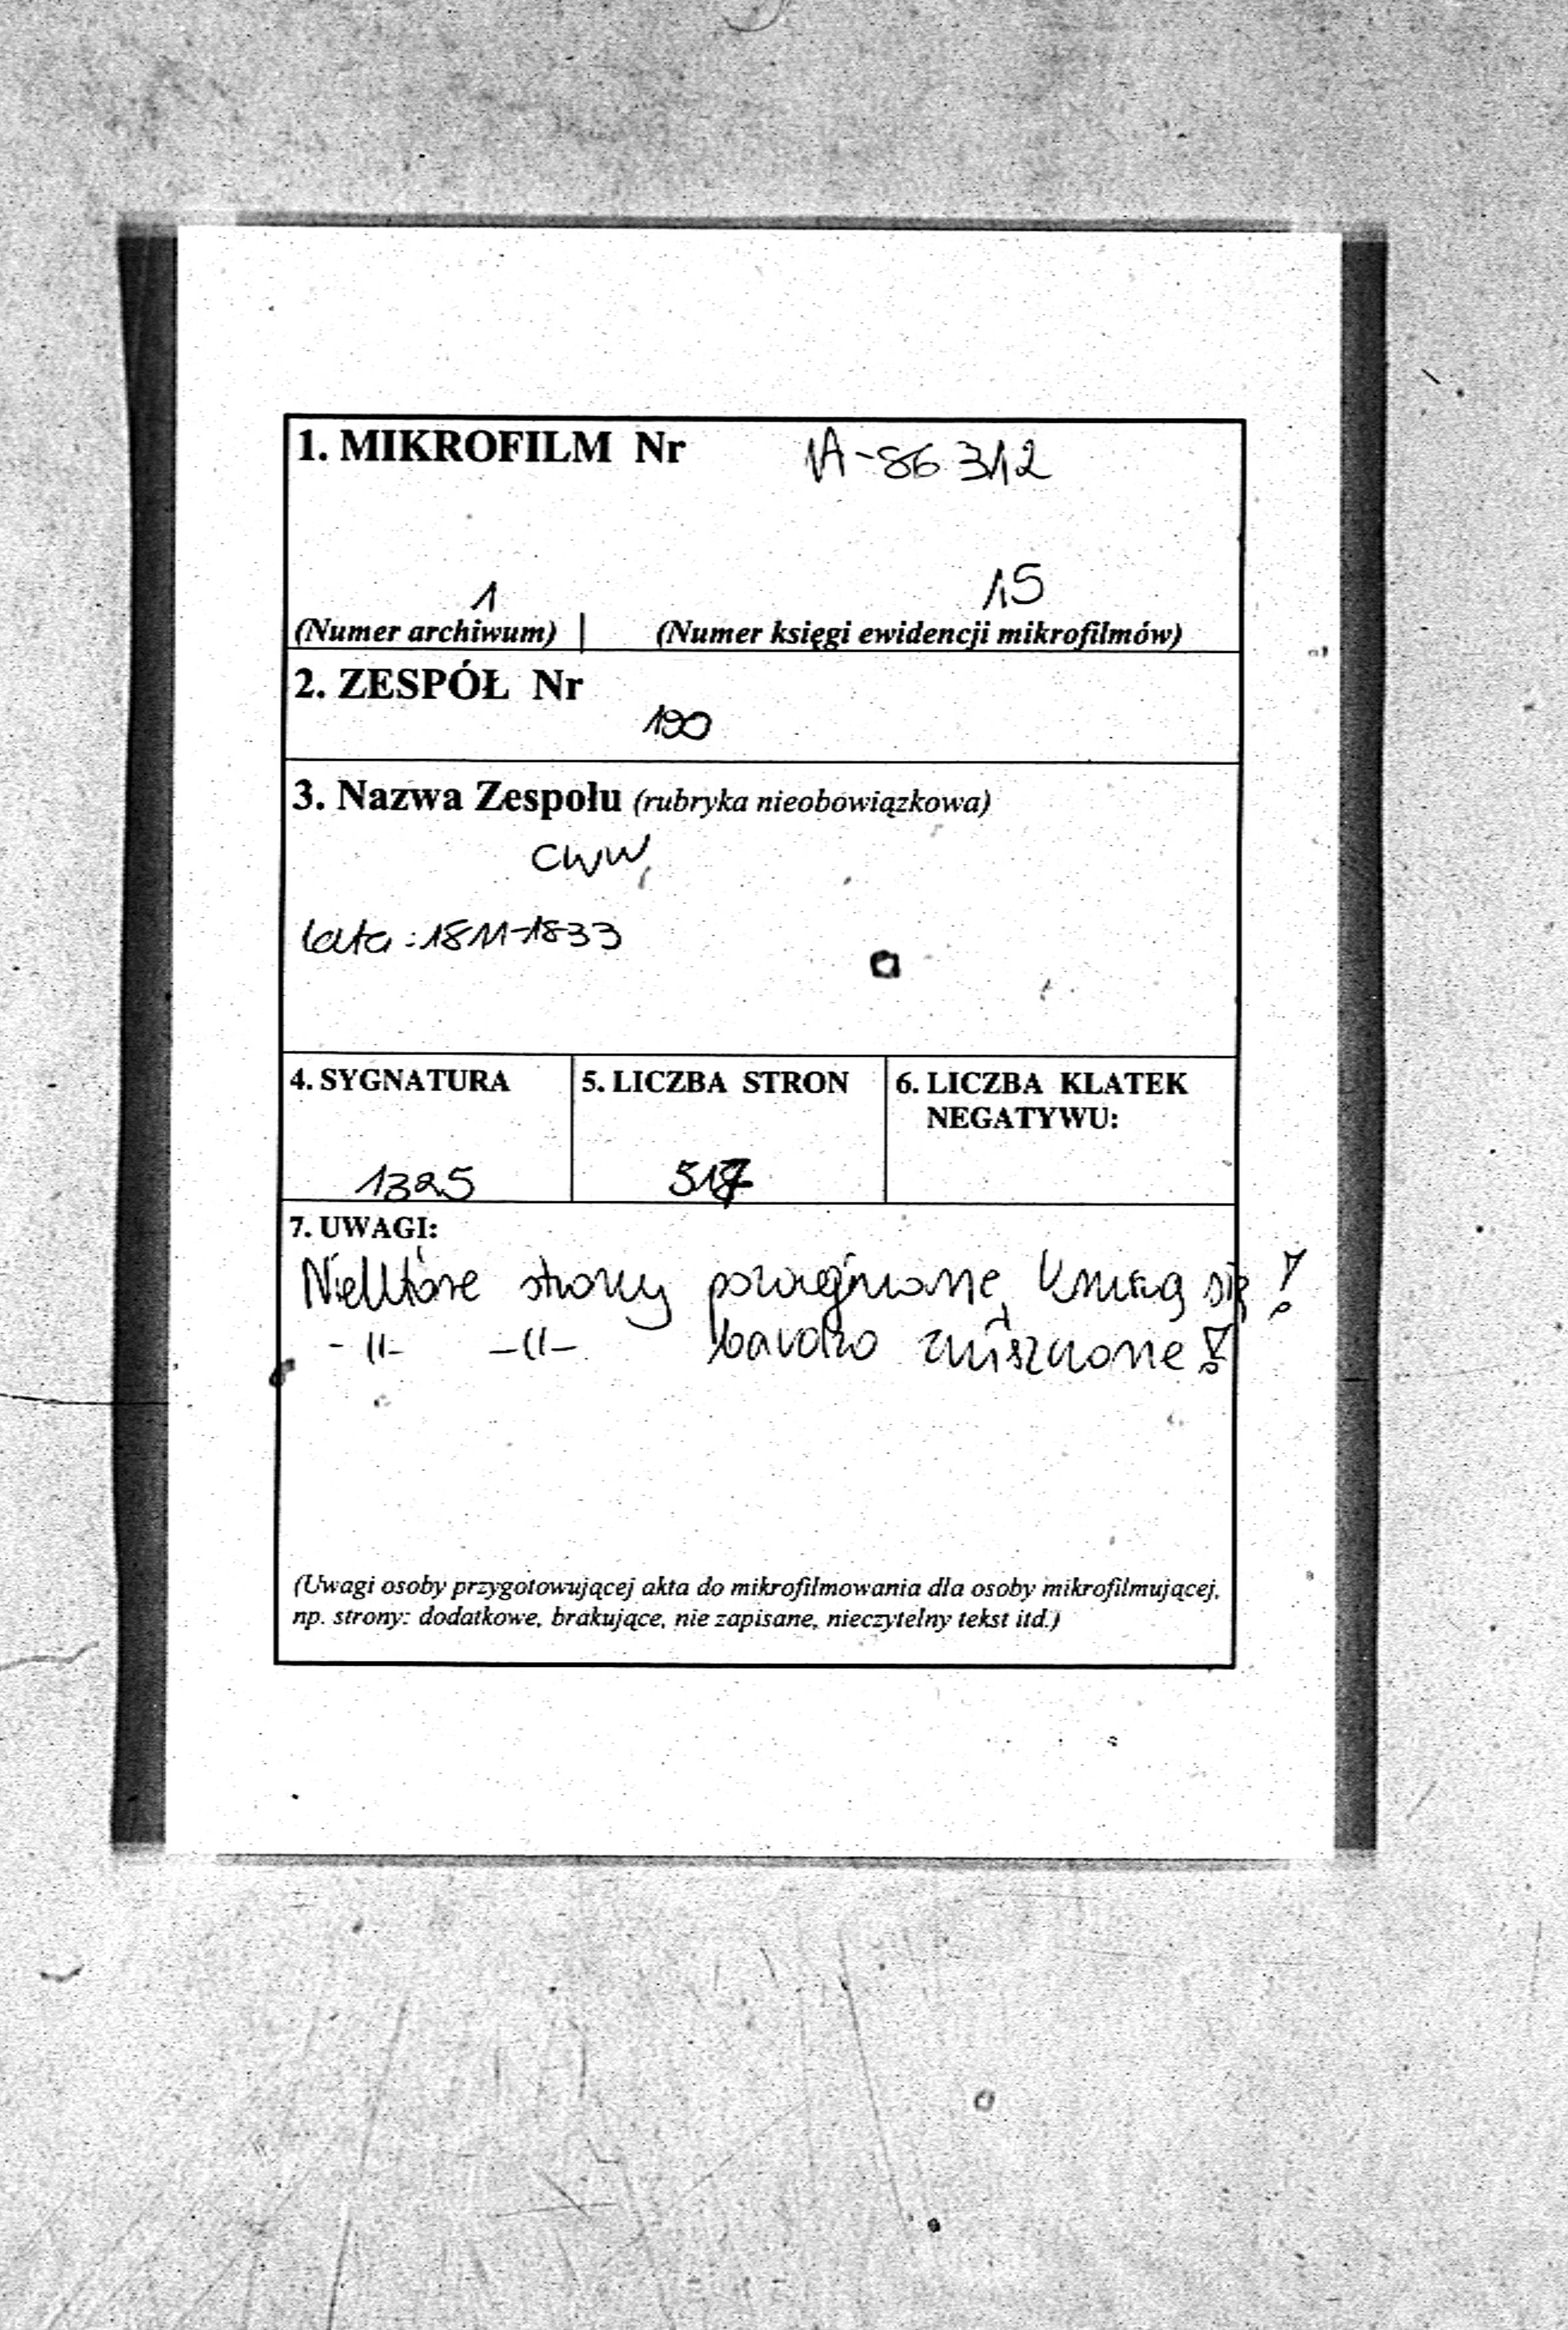 1. MIKROFILM Nr A-86312
1 15
(Numer archiwum) | (Numer księgi ewidencji mikrofilmów)
2. ZESPÓŁ Nr
190
3. Nazwa Zespołu (rubryka nieobowiązkowa)
CWW
lata: 1811-1833
4. SYGNATURA 5. LICZBA STRON 6. LICZBA KLATEK
NEGATYWU:
1325 517
7. UWAGI:
Niektóre strony pozaginane, kruszą się!
-||- -||- bardzo zniszczone!
(Uwagi osoby przygotowującej akta do mikrofilmowania dla osoby mikrofilmującej,
np. strony: dodatkowe, brakujące, nie zapisane, nieczytelny tekst itd.)